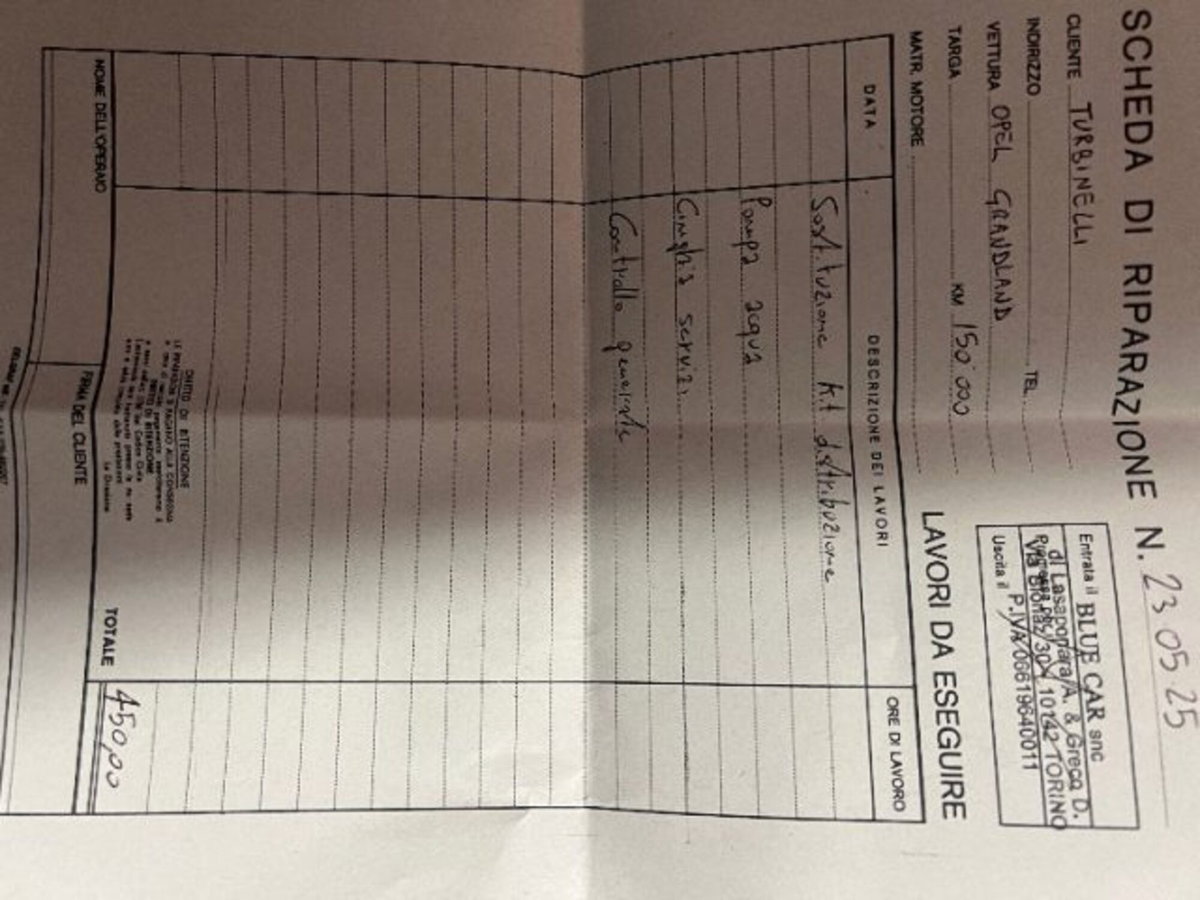 SCHEDA DI RIPARAZIONE N. 23 05 25
CLIENTE TURBINELLI
INDIRIZZO TEL.
VETTURA OPEL GRANDLAND
TARGA KM 150'000
MATR. MOTORE
Entrata il BLUE CAR snc
di Lasaponara A. & Greco D.
Via Bionaz, 30 10142 TORINO
Uscita il P.IVA 06619640011
LAVORI DA ESEGUIRE
DATA DESCRIZIONE DEI LAVORI ORE DI LAVORO
Sostituzione Kit distribuzione
Pompa acqua
Cinghia servizi
Controllo generale
DIRITTO DI RITENZIONE
LE RIPARAZIONI SI PAGANO ALLA CONSEGNA
DIRITTO DI RITENZIONE
La Direzione
TOTALE 450,00
NOME DELL'OPERAIO FIRMA DEL CLIENTE